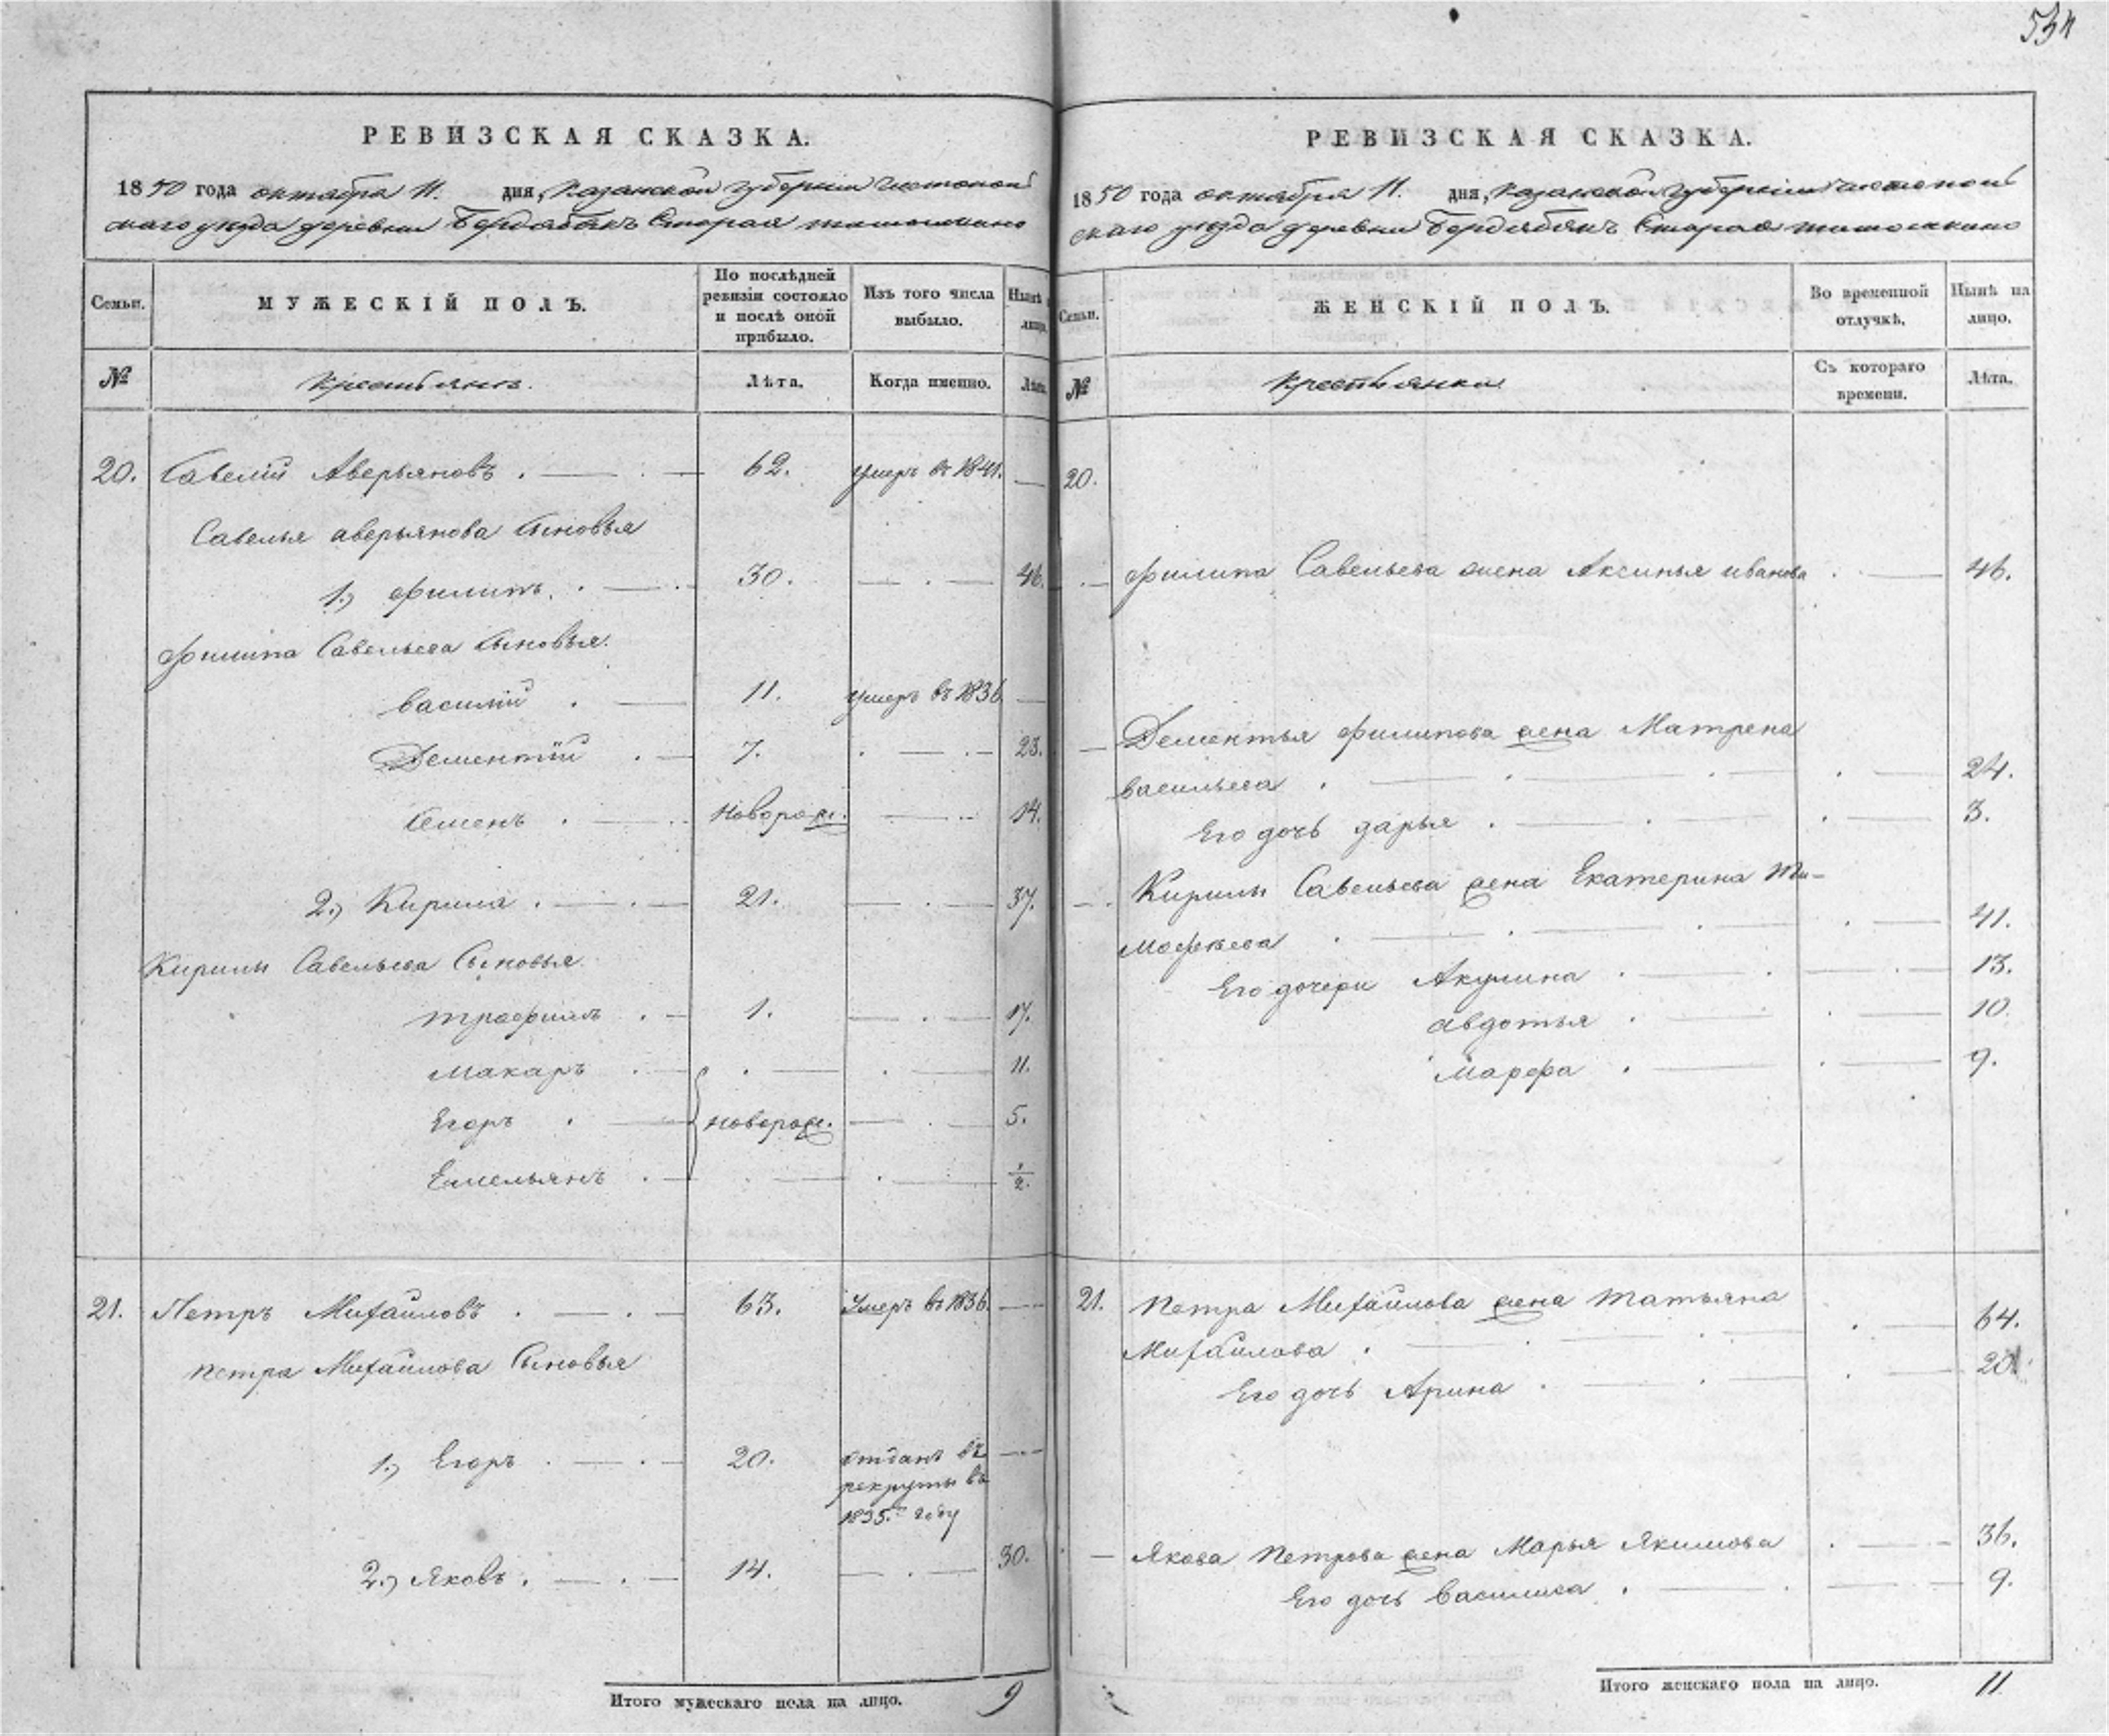 534
РЕВИЗСКАЯ СКАЗКА.
1850 года октября 11. дня, Казанской губернии Чистополь
скаго уезда деревни Бердебякъ Старая
Семьи.
МУЖЕСКІЙ ПОЛЪ.
По послѣдней ревизіи состояло и послѣ оной прибыло.
Изъ того числа выбыло.
Нынѣ лицо.
№
Крестьянъ.
Лѣта.
Когда именно.
Лѣта.
20. Савелій Аверьяновъ . — . — 62. умеръ въ 1841. —
Савелья аверьянова сыновья
1.) Филипъ. . — . 30. — . — 46.
Филипа Савельева сыновья.
василій . — 11. умеръ въ 1836 —
Дементій . — 7. . — . — 23.
Семенъ . — . новорож. — . . 14.
2.) Кирила . — . — 21. — . — 37.
Кирилы Савельева Сыновья.
трофимъ . — 1. — . — 17.
Макаръ . — . — . — 11.
Егоръ . — новорож. — . — 5.
Емельянъ . — . — . — 1/2.
21. Петръ Михайловъ . — . — 63. Умеръ въ 1836. —
Петра Михайлова Сыновья
1.) Егоръ . — . — 20. отданъ въ —
рекруты въ
1835.г году
2.) Яковъ . — . — 14. — . — 30.
Итого мужескаго пола на лицо. 9
РЕВИЗСКАЯ СКАЗКА.
1850 года октября 11. дня, Казанской губерніи Чистополь
скаго уезда деревни Бердебякъ Старая
Семьи.
ЖЕНСКІЙ ПОЛЪ.
Во временной отлучкѣ.
Нынѣ на лицо.
№
Крестьянки
Съ котораго времени.
Лѣта.
20.
. — Филипа Савельева жена Аксинья иванова . — 46.
— Дементья Филипова жена Матрена
васильева . — . — . — . — 24.
Его дочь дарья . — . — . — 3.
— . Кирилы Савельева жена Екатерина Ти-
мофѣева . — . — . — . — 41.
Его дочери Акулина . — . — . — 13.
авдотья . — . — 10.
Марфа . — . — 9.
21. Петра Михайлова жена Татьяна
Михайлова . — . — . — . — 64.
Его дочь Арина . — . — . — 20.
. — Якова Петрова жена Марья Якимова . — 36.
Его дочь василиса . — . — 9.
Итого женскаго пола на лицо. 11